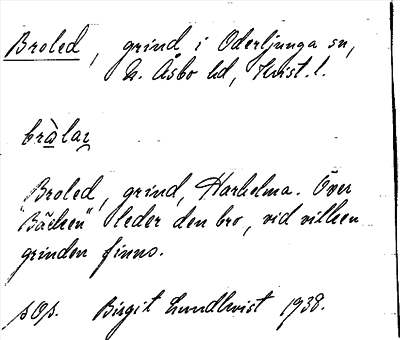 Broled, grind i Oderljunga sn,
N. Åsbo hd, Krist. l.
Broled, grind, Harhelma. Över
"Bäcken" leder den bro, vid vilken
grinden finns.
Birgit Lundkvist 1938.